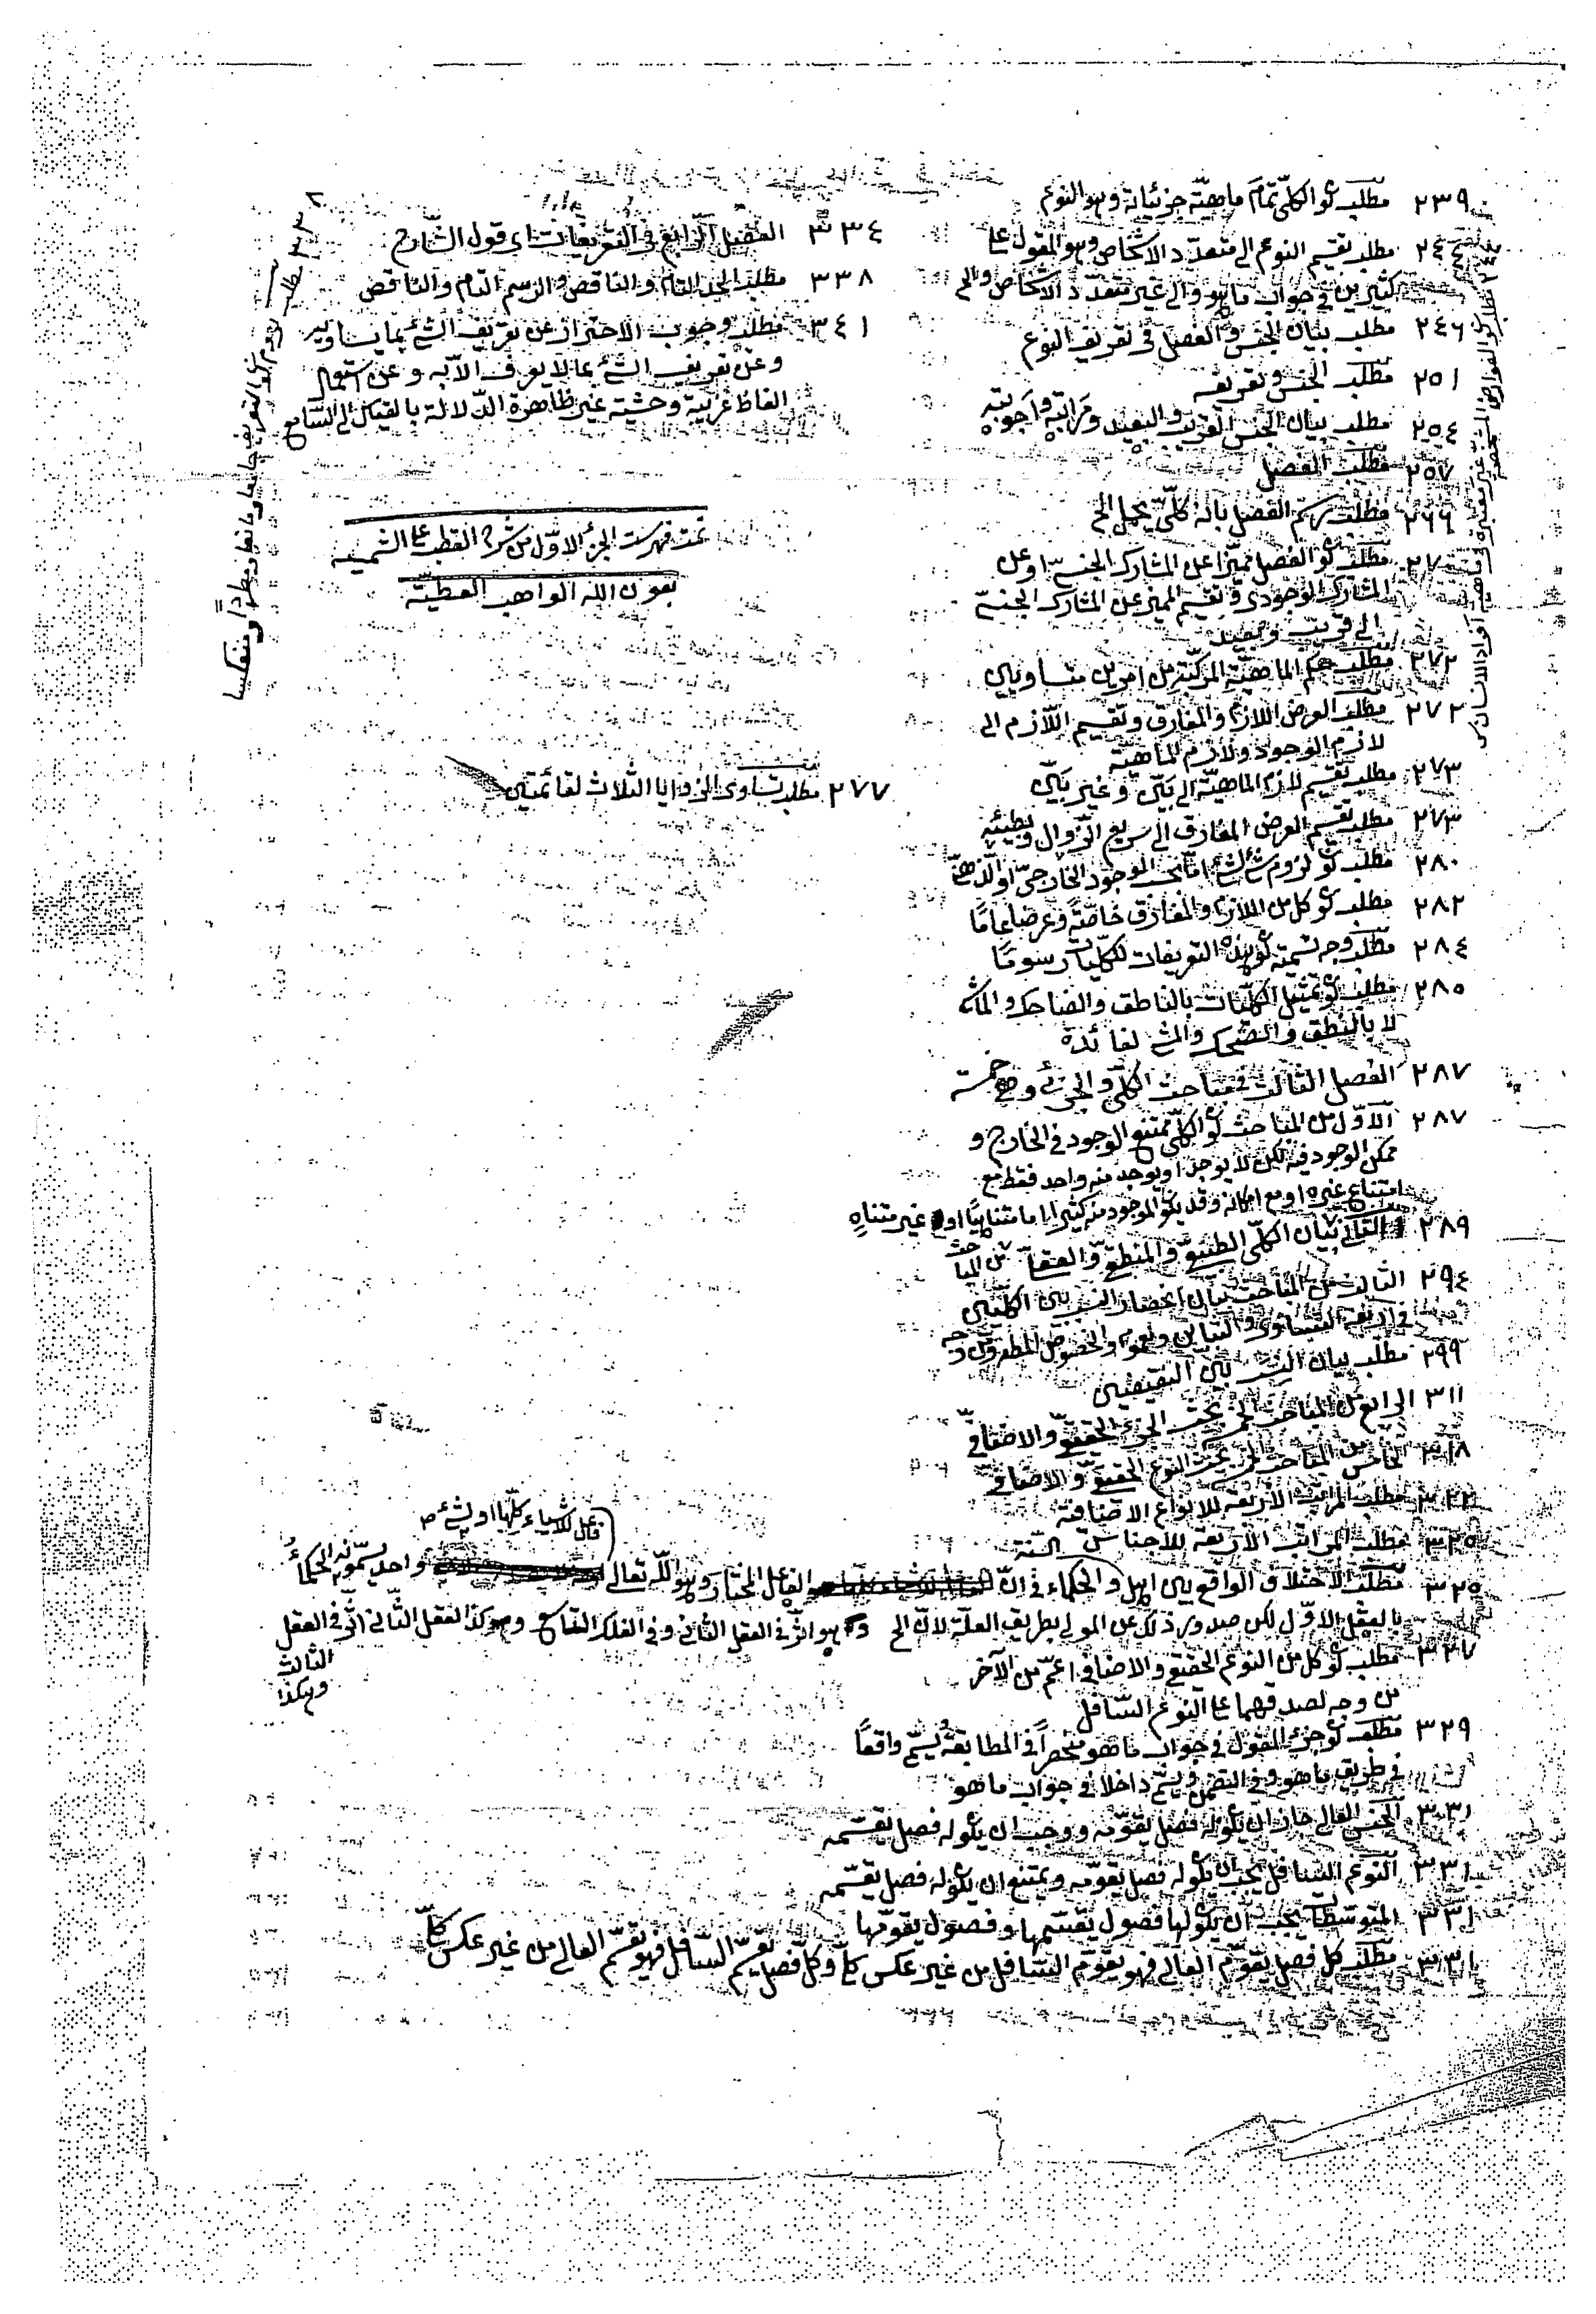 ٢٣٩ مطلب كو الكلّي تمام ماهيّة جزئياته وهو النوع
٢٤٤ مطلب تقسيم النوع الى متعدّد الاشخاص وهو المقول على
كثيرين في جواب ما هو والى غير متعدّد الاشخاص والخ
٢٤٦ مطلب بيان الجنس والفصل في تعريف النوع
٢٥١ مطلب الجنس وتعريفه
٢٥٤ مطلب بيان الجنس القريب والبعيد ومراتبه واجوبته
٢٥٧ مطلب الفصل
٢٦٦ مطلب رسم الفصل بانه كلّيّ يحمل الخ
مطلب كو الفصل مميّزا عن المشارك الجنسيّ او عن
المشارك الوجودى وتقسيم المميز عن المشارك الجنسيّ
الى قريب وبعيد
٢٧٢ مطلب حكم الماهيّة المركّبة من امرين متساويين
٢٧٢ مطلب العرض اللازم والمفارق وتقسيم اللّازم الى
لازم الوجود ولازم الماهيّة
٢٧٣ مطلب تقسيم لازم الماهيّة الى بيّن وغير بيّن
٢٧٣ مطلب تقسيم العرض المفارق الى سريع الزّوال وبطيئه
٢٨٠ مطلب كو لزوم شئ لشئ امّا في الموجود الخارجيّ او الذّهنيّ
٢٨٢ مطلب كو كل من اللازم والمفارق خاصّةً وعرضا عامّا
٢٨٤ مطلب وجه تسمية كو هذه التعريفات للكلّيات رسومًا
٢٨٥ مطلب كو تمثيل الكلّيات بالناطق والضاحك والماشي
لا بالنطق والضحك والمشي لفائدة
٢٨٧ الفصل الثالث في مباحث الكلّي والجزئي وهي خمسة
٢٨٧ الاوّل من المباحث كو الكلّي ممتنع الوجود في الخارج و
ممكن الوجود فيه لكن لا يوجد او يوجد منه واحد فقط مع
امتناع غيره او مع امكانه وقد يكو الموجود منه كثيرا اما متناهيًا او غير متناهٍ
٢٨٩ الثاني بيان الكلّي الطبيعيّ والمنطقيّ والعقليّ من المباحث
٢٩٤ الثالث من المباحث بيان انحصار النسب بين الكلّيّين
في اربعة التساوى والتباين والعموم والخصوص المطلق ومن وجه
٢٩٩ مطلب بيان النسب بين النقيضين
٣١١ الرابع من المباحث الخمسة بحث الجزئي الحقيقيّ والاضافيّ
٣١٨ الخامس من المباحث الخمسة بحث النوع الحقيقيّ والاضافيّ
٣٢٢ مطلب المراتب الاربعة للانواع الاضافية
٣٢٥ مطلب المراتب الاربعة للاجناس
٣٢٥ مطلب الاختلاف الواقع بين اهل السنة والحكماء في انّ الفاعل المختار وهو اللّه تعالى فاعل للاشياء كلّها او لشئ واحد يسمّونه الحكماءُ
بالعقل الاوّل لكن صدور ذلك عن المولى بطريق العلّة لانّ الخ وهو اثّر في العقل الثاني وفي الفلك التاسع وهكذا العقل الثّاني اثّر في العقل
الثالث
وهكذا
٣٢٧ مطلب كو كل من النوع الحقيقي والاضافي اعمّ من الآخر
من وجه لصدقهما على النوع السّافل
٣٢٩ مطلب كو جزء المقول في جواب ما هو منحصراً في المطابقة ويسمّى واقعًا
في طريق ما هو وفي التضمن ويسمّى داخلا في جواب ما هو
٣٣١ الجنس العالي جاز ان يكو له فصل يقوّمه ووجب ان يكو له فصل يقسّمه
٣٣١ النوع السافل يجب ان يكو له فصل يقوّمه ويمتنع ان يكو له فصل يقسّمه
٣٣١ المتوسّطات يجب ان يكو لها فصول يقسّمها وفصول يقوّمها
٣٣١ مطلب كل فصل يقوّم العالي فهو يقوّم السّافل من غير عكس كلّي وكلّ فصل يقسّم السّافل فهو يقسّم العالي من غير عكس كلّيّ
٣٣٤ الفصل الرّابع في التعريفات اى قول الشّارح
٣٣٨ مطلب الحد التام والناقص والرسم التام والناقص
٣٤١ مطلب وجوب الاحتراز عن تعريف الشئ بما يساويه
وعن تعريف الشئ بما لا يعرف الّا به وعن استعمال
الفاظ غريبة وحشية غير ظاهرة الدّلالة بالقياس الى السّامع
تمت فهرست الجزء الاوّل من شرح القطب على الشمسية
بعون اللّه الواهب العطيّة
٢٧٧ مطلب تساوى الزوايا الثّلاث لقائمتين
٣٣٨ مطلب لزوم كو التعريف جامعا ومانعا ومطّرداً ومنعكسا
٢٤٤ مطلب كو العوارض المشخّصة غير معتبرة في ماهية افراد الانسان